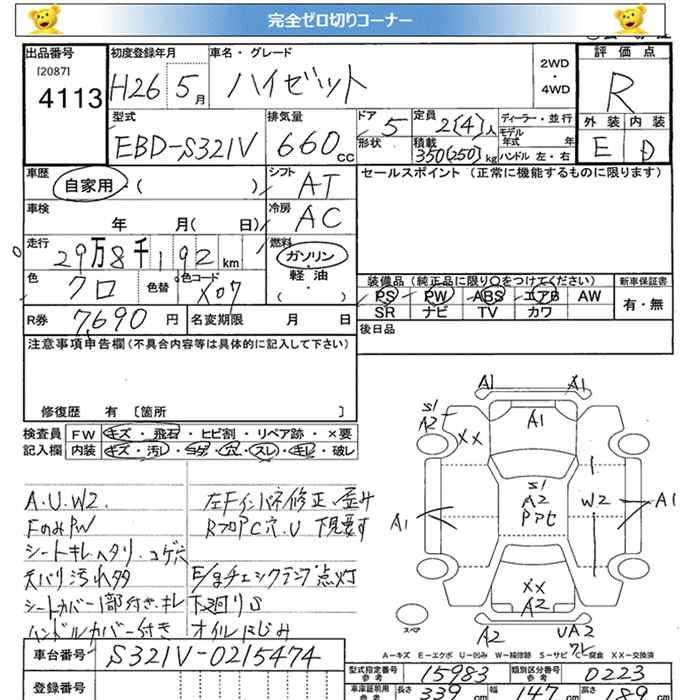 完全ゼロ切りコーナー
出品番号 初度登録年月 車名・グレード 評価点
[2087]
4113 H26 5月 ハイゼット 2WD・4WD R
型式 排気量 ドア 定員 ディーラー・並行 外装 内装
EBD-S321V 660cc 5 2[4]人 モデル年式 年 E D
形状 積載 350[250]kg ハンドル 左・右
車歴 シフト セールスポイント（正常に機能するものに限ります）
自家用・（ ） AT
車検 冷房
年 月（ 日） AC
走行 燃料
29万8千192km ガソリン・軽油
（ ・ ）
色 色替 色コード 装備品（純正品に限り○をつけてください） 新車保証書
クロ X07 PS PW ABS エアB AW 有・無
SR ナビ TV カワ
R券 7690円 名変期限 月 日 後日品
注意事項申告欄（不具合内容等は具体的に記入して下さい）
修復歴 有 〔箇所 〕
検査員記入欄 FW キズ・飛石・ヒビ割・リペア跡・×要
内装 キズ・汚レ・コゲ・穴・スレ・キレ・破レ
A.U.W2. 左Fインパネ修正、歪み
FのみPW RフロアC穴.U 下見要す
シートキレ、ヘタリ.コゲ穴
天バリ汚れ多 E/gチェックランプ点灯
シートカバー1部付き.キレ 下廻りS
ハンドルカバー付き オイルにじみ
A1 A1
S1
A2 A1
XX
S1
A2 W2
A1 A1
XX
A2
スペア
A2 UA2
ワレ
A－キズ E－エクボ U－凹み W－補修跡 S－サビ C－腐食 XX－交換済
車台番号 S321V-0215474
型式指定番号 参考 15983 類別区分番号 参考 0223
登録番号 車庫証明用 参考 長さ 339cm 幅 147cm 高さ 189cm